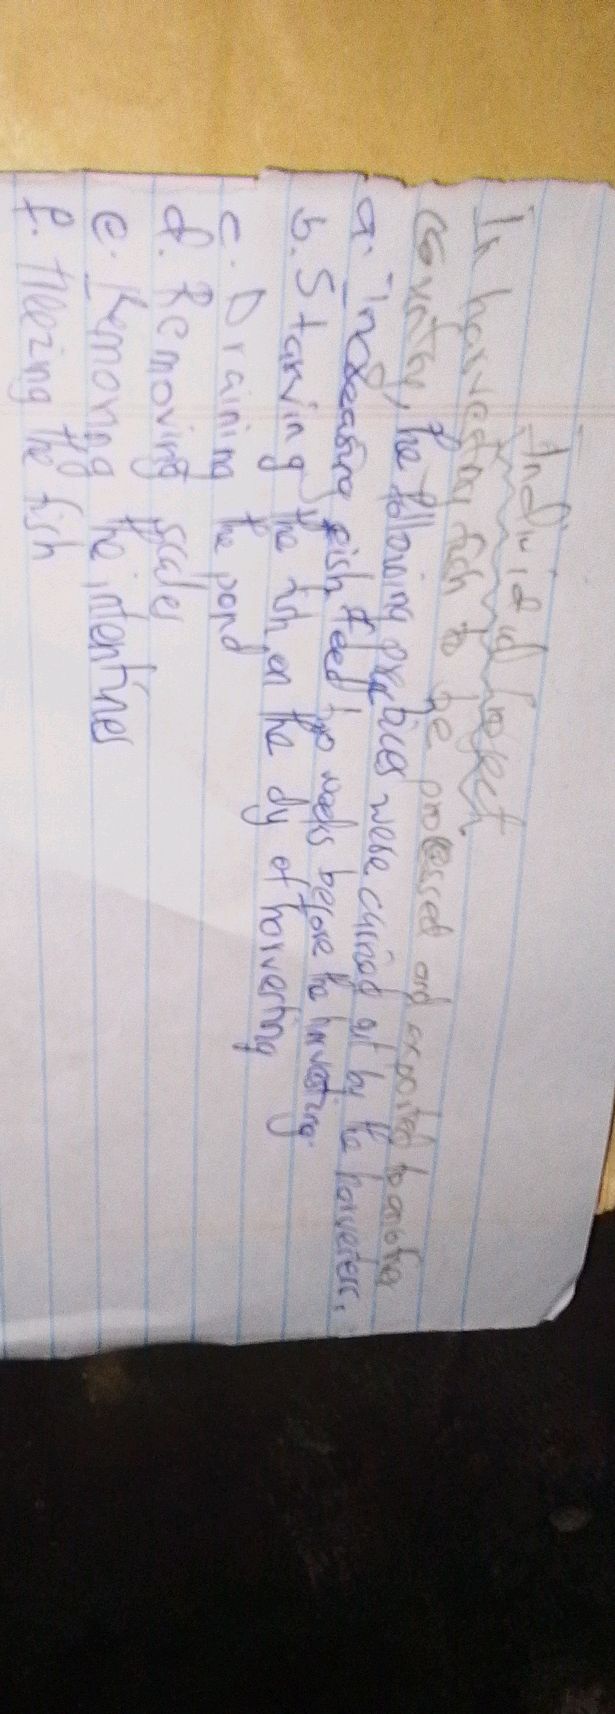 Individual Project
In harvesting fish to be processed and exported to another
country, the following practices were carried out by the harvesters.
a. Increasing fish feed two weeks before the harvesting.
b. Starving the fish on the dy of harvesting
c. Draining the pond
d. Removing scales
e. Removing the intentines
f. freezing the fish